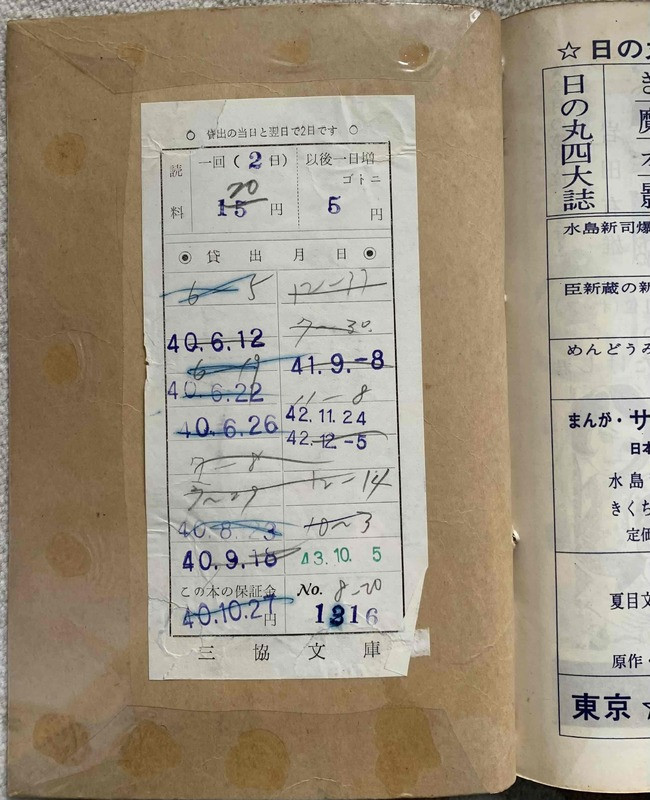 貸出の当日と翌日で2日です
読料
一回(2日)
20
15円
以後一日増ゴトニ
5円
貸出月日
6-5
40.6.12
6-19
40.6.22
40.6.26
7-8
40.8.23
40.9.16
この本の保証金
40.10.27円
12-17
7-30.
41.9.-8
11-8
42.11.24
42.12-5
12-14
10-3
43.10. 5
No. 8-20
1316
三協文庫
☆日の
日の丸四大誌
水島新司
臣新蔵の新
めんどうみ
まんが・サ
日本
水島
きくち
定価
夏目文
原作・
東京☆